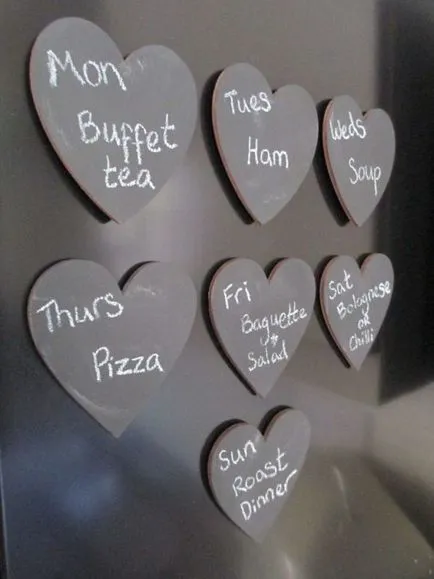 Mon
Buffet
tea
Tues
Ham
Weds
Soup
Thurs
Pizza
Fri
Baguette
+
Salad
Sat
Bolognese
or
Chilli
Sun
Roast
Dinner